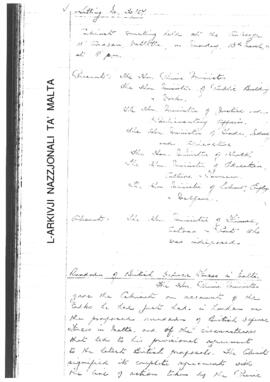 Meeting No.
Cabinet meeting held at the Auberge
at 5 p.m.
Present: The Hon. Prime Minister
The Hon. Minister of Public Building
& Works
The Hon. Minister of Justice and
Parliamentary Affairs
The Hon. Minister of Trade, Industry
and
The Hon. Minister of Health
The Hon. Minister of Education,
Culture & Tourism
The Hon. Minister of Labour,
& Welfare
Absent: The Hon. Minister of Finance,
Customs & Port who
was indisposed
Rundown of British Service Forces in Malta.
The Hon. Prime Minister
gave the Cabinet an account of the
talks he had just had in London on
the proposed rundown of British Service
Forces in Malta and of the circumstances
that led to his provisional agreement
to the latest British proposals. The Cabinet
signified its complete agreement with
the line of action taken by the Prime
L-ARKIVJI NAZZJONALI TA' MALTA